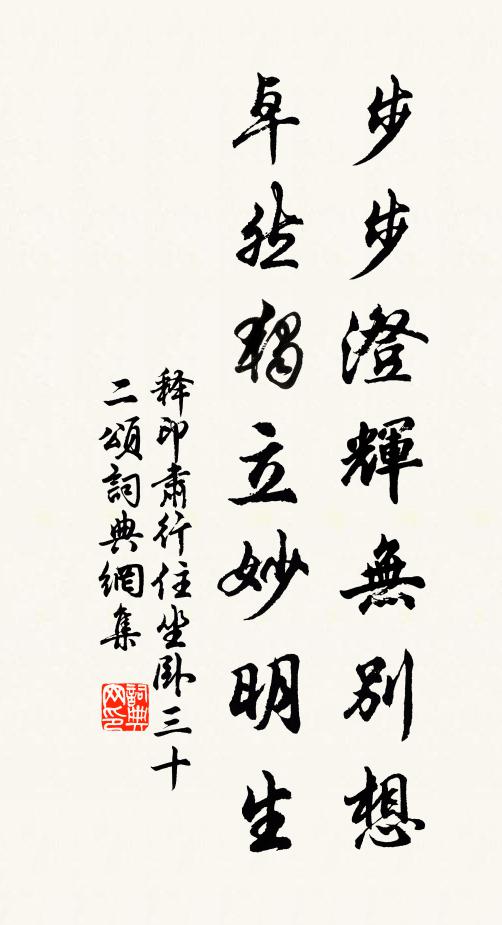 步步澄輝無別想
卓然獨立妙明生
释印肅行住坐卧三十
二頌詞典網集
詞典网印